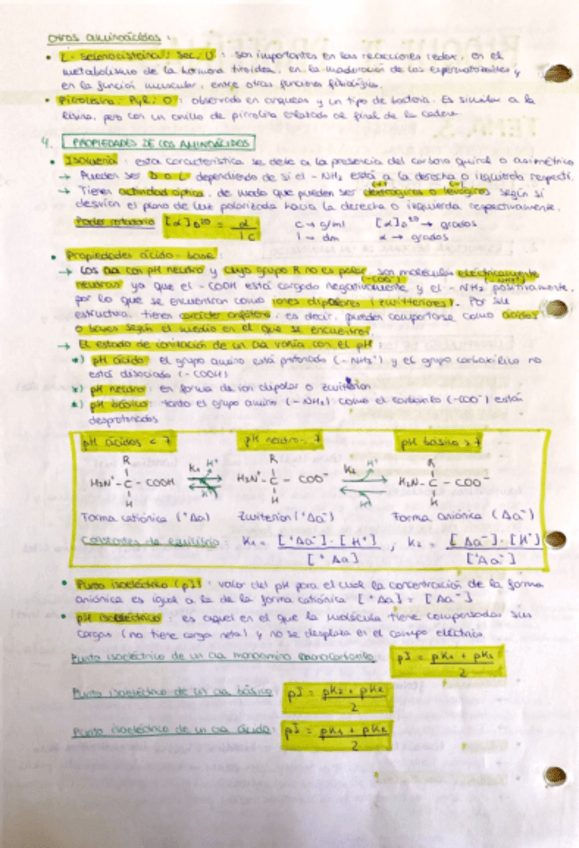 Otros aminoácidos:
• L-Selenocisteína: Sec, U: son importantes en las reacciones redox, en el
metabolismo de la hormona tiroidea, en la maduración de los espermatozoides y
en la función muscular, entre otras funciones fisiológicas.
• Pirrolisina: Pyl, O: observado en arqueas y un tipo de bacteria. Es similar a la
lisina, pero con un anillo de pirrolina enlazado al final de la cadena.
4. PROPIEDADES DE LOS AMINOÁCIDOS
• Isomería: esta característica se debe a la presencia del carbono quiral o asimétrico
→ Pueden ser D o L dependiendo de si el -NH₂ está a la derecha o izquierda respecti.
→ Tienen actividad óptica, de modo que pueden ser dextrógiros (+) o levógiros (-) según si
desvíen el plano de luz polarizada hacia la derecha o izquierda respectivamente.
Poder rotatorio [α]D²⁰ = α / l c c → g/ml [α]D²⁰ → grados
l → dm α → grados
• Propiedades ácido-base:
→ Los aa con pH neutro y cuyo grupo R no es polar, son moléculas eléctricamente
neutras ya que el -COOH (-COO⁻) está cargado negativamente y el -NH₂ (-NH₃⁺) positivamente,
por lo que se encuentran como iones dipolares (zwitteriones). Por su
estructura, tienen carácter anfótero, es decir, pueden comportarse como ácidos
o bases según el medio en el que se encuentren.
→ El estado de ionización de un aa varía con el pH:
*) pH ácido: el grupo amino está protonado (-NH₃⁺) y el grupo carboxílico no
está disociado (-COOH)
*) pH neutro: en forma de ion dipolar o zwitterion
*) pH básico: tanto el grupo amino (-NH₂) como el carboxilo (-COO⁻) están
desprotonados
pH ácidos < 7 pH neutro ~ 7 pH básico > 7
R R R
H₃N⁺-C-COOH K₁ H⁺ H⁺ H₃N⁺-C-COO⁻ K₂ H⁺ H⁺ H₂N-C-COO⁻
H H H
Forma catiónica (⁺Aa) Zwiterión (⁺Aa⁻) Forma aniónica (Aa⁻)
Constantes de equilibrio K₁ = [⁺Aa⁻]·[H⁺] / [⁺Aa] ; K₂ = [Aa⁻]·[H⁺] / [⁺Aa⁻]
• Punto isoeléctrico (pI): valor del pH para el cual la concentración de la forma
aniónica es igual a la de la forma catiónica [⁺Aa] = [Aa⁻]
• pH isoeléctrico: es aquel en el que la molécula tiene compensadas sus
cargas (no tiene carga neta) y no se desplaza en el campo eléctrico.
Punto isoeléctrico de un aa monoamino monocarboxílico: pI = pK₁ + pK₂ / 2
Punto isoeléctrico de un aa básico: pI = pK₂ + pKR / 2
Punto isoeléctrico de un aa ácido: pI = pK₁ + pKR / 2